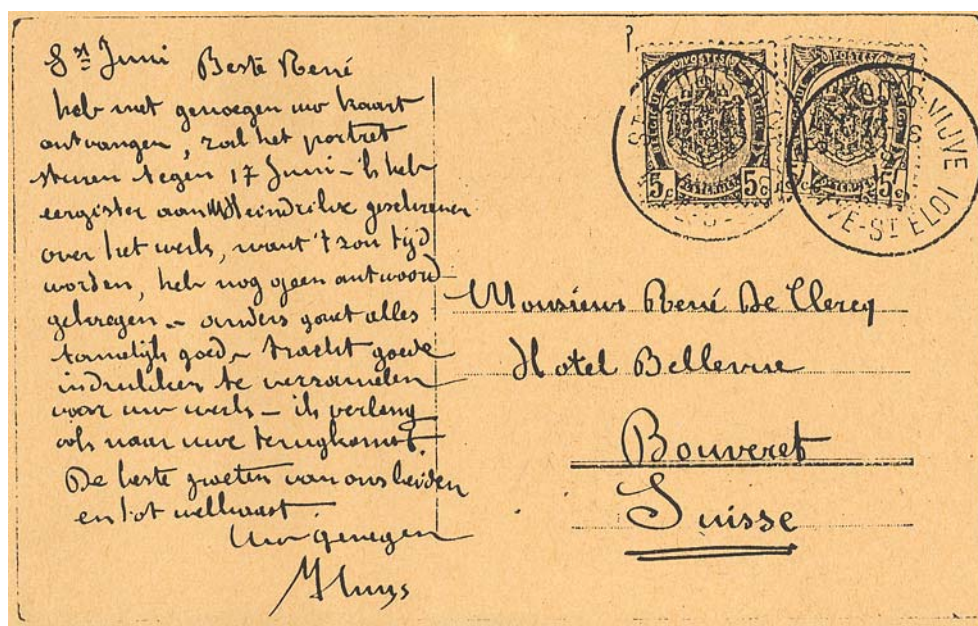 8st Juni Beste René
heb met genoegen uw kaart
ontvangen, zal het portret
sturen tegen 17 Juni - ik heb
eergister aan geschreven
over het werk, want 't zou tijd
worden, heb nog geen antwoord
gekregen - anders gaat alles
tamelijk goed - tracht goede
indrukken te verzamelen
voor uw werk - ik verlang
ook naar uwe terugkomst.
De beste groeten van ons beiden
en tot welhaast
Uw genegen
5c 5c 5c
VIJVE
VE-ST ELOI
Monsieur René De Clercq
Hotel Bellevue
Bouveret
Suisse